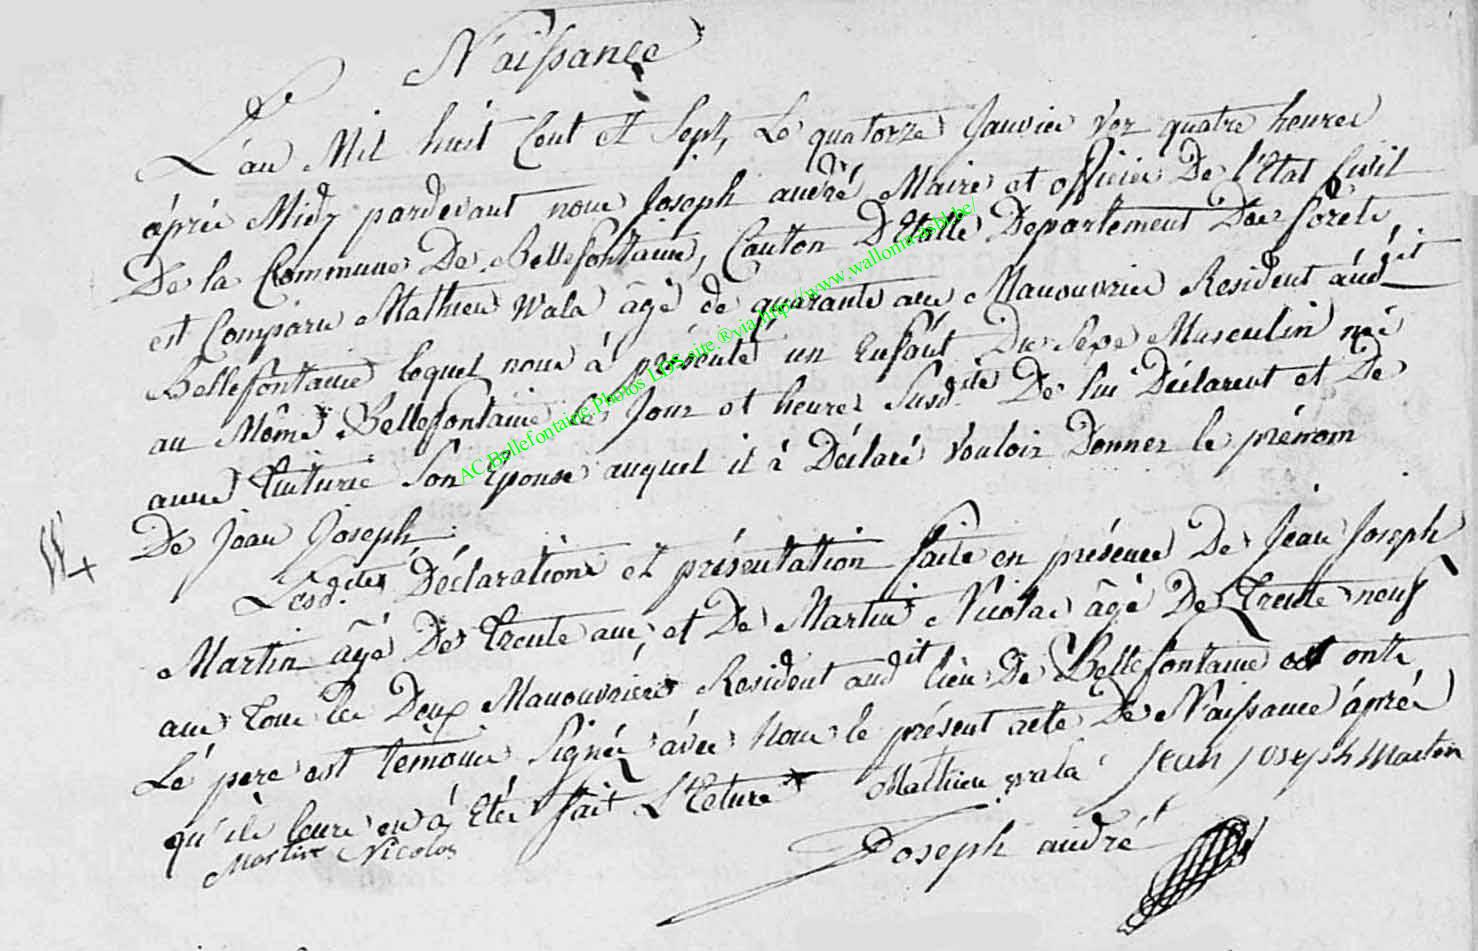 Naissance
L'an Mil huit Cent et Sept, Le quatorze Janvier Ver quatre heures
âprés Midy pardevant nous Joseph andré Maire et officier De l'Etat Civil
De la Commune De Bellefontaine, Canton D'Etalle Departement Des forêts
est Comparu Mathieu Wala âgé de quarante ans Manouvrier Resident audit
Bellefontaine lequel nous à présenté un Enfant Du Sexe Masculin né
au Même Bellefontaine le Jour et heures Susdite De lui Déclarent et De
anne Son Epouse auquel il à Déclaré Vouloir Donner le prénom
De Jean Joseph
Lesdites Déclarations et présentation faite en présence De Jean Joseph
Martin âgé De trente ans, et De Martin Nicolas âgé De trente neuf
ans tous les Deux Manouvriers Resident audit lieu De Bellefontaine et onts
Le pere est témoins Signés avec Nous le présent acte De Naissance âprés
qu'ils leurs en à Etés fait L'Ecture Mathieu wala Jean joseph Martin
Martin Nicolas
Joseph andré
AC.Bellefontaine.Photos LDS.site.®via.http://www.wallonia-asbl.be/